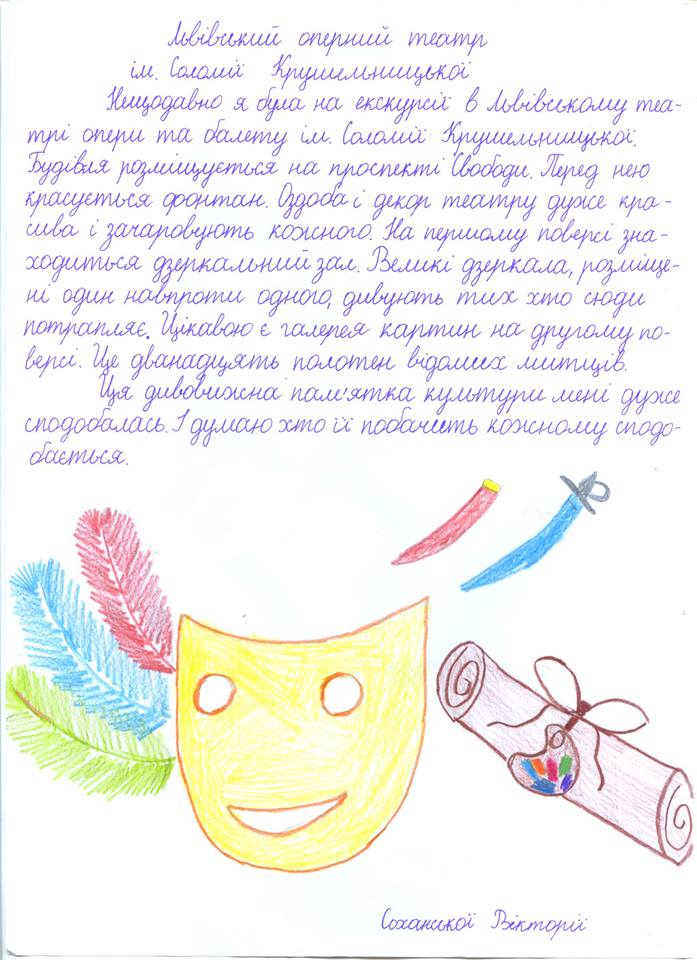 Львівський оперний театр
ім. Соломії Крушельницької
Нещодавно я була на екскурсії в Львівському теа-
трі опери та балету ім. Соломії Крушельницької.
Будівля розміщується на проспекті Свободи. Перед нею
красується фонтан. Оздоба і декор театру дуже кра-
сива і зачаровують кожного. На першому поверсі зна-
ходиться дзеркальний зал. Великі дзеркала, розміще-
ні один навпроти одного, дивують тих хто сюди
потрапляє. Цікавою є галерея картин на другому по-
версі. Це дванадцять полотен відомих митців.
Ця дивовижна пам'ятка культури мені дуже
сподобалась. І думаю хто її побачить кожному сподо-
бається.
Соханської Вікторії